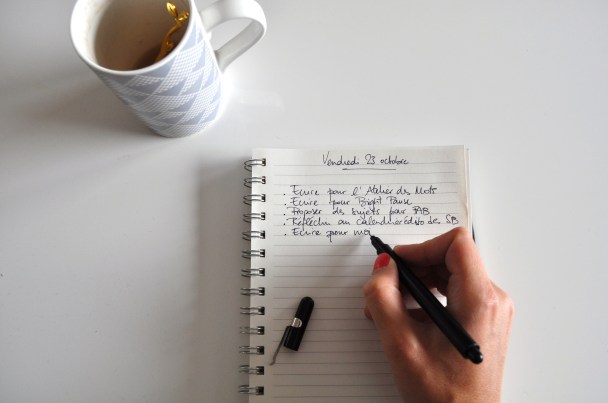 Vendredi 23 octobre
. Ecrire pour l'Atelier des Mots
. Ecrire pour Bright Pause
. Proposer des sujets pour
. Réfléchir au Calendrier édito de SB
. Ecrire pour moi